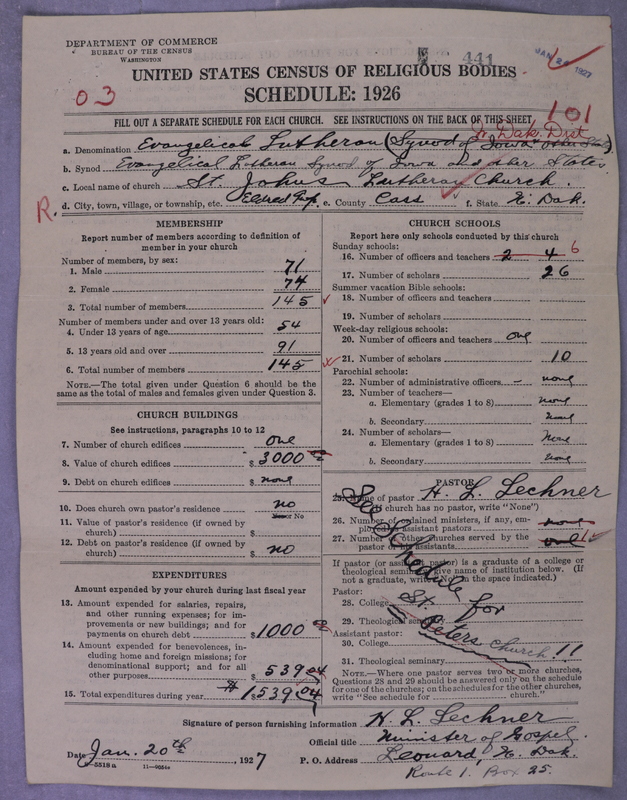 DEPARTMENT OF COMMERCE
BUREAU OF THE CENSUS
WASHINGTON
441
JAN 26 1927
UNITED STATES CENSUS OF RELIGIOUS BODIES
SCHEDULE: 1926
03
101
FILL OUT A SEPARATE SCHEDULE FOR EACH CHURCH. SEE INSTRUCTIONS ON THE BACK OF THIS SHEET
N. Dak. Dist
a. Denomination Evangelical Lutheran (Synod of Iowa & other States)
b. Synod Evangelical Lutheran Synod of Iowa and other States.
c. Local name of church St. Johns Lutheran Church.
R. d. City, town, village, or township, etc. Eldred Twp. e. County Cass f. State N. Dak.
MEMBERSHIP
Report number of members according to definition of member in your church
Number of members, by sex:
1. Male 71
2. Female 74
3. Total number of members 145
Number of members under and over 13 years old:
4. Under 13 years of age 54
5. 13 years old and over 91
6. Total number of members 145
NOTE.—The total given under Question 6 should be the same as the total of males and females given under Question 3.
CHURCH BUILDINGS
See instructions, paragraphs 10 to 12
7. Number of church edifices one
8. Value of church edifices $ 3000 00
9. Debt on church edifices $ none
10. Does church own pastor's residence no
Yes or No
11. Value of pastor's residence (if owned by church) $
12. Debt on pastor's residence (if owned by church) $ no
EXPENDITURES
Amount expended by your church during last fiscal year
13. Amount expended for salaries, repairs, and other running expenses; for improvements or new buildings; and for payments on church debt $ 1000 00
14. Amount expended for benevolences, including home and foreign missions; for denominational support; and for all other purposes $ 539 04
15. Total expenditures during year $ 1,539 04
CHURCH SCHOOLS
Report here only schools conducted by this church
Sunday schools:
16. Number of officers and teachers 2 4 6
17. Number of scholars 26
Summer vacation Bible schools:
18. Number of officers and teachers
19. Number of scholars
Week-day religious schools:
20. Number of officers and teachers one
21. Number of scholars 10
Parochial schools:
22. Number of administrative officers – none
23. Number of teachers—
a. Elementary (grades 1 to 8) none
b. Secondary none
24. Number of scholars—
a. Elementary (grades 1 to 8) none
b. Secondary none
PASTOR
25. Name of pastor H. L. Lechner
(If church has no pastor, write "None")
26. Number of ordained ministers, if any, employed as assistant pastors none
27. Number of other churches served by the pastor or his assistants one
If pastor (or assistant pastor) is a graduate of a college or theological seminary, give name of institution below. (If not a graduate, write "No" in the space indicated.)
Pastor:
28. College
29. Theological seminary
Assistant pastor:
30. College
31. Theological seminary
See schedule for St. Peters church!!
NOTE.—Where one pastor serves two or more churches, Questions 28 and 29 should be answered only on the schedule for one of the churches; on the schedules for the other churches, write "See schedule for church.")
Signature of person furnishing information H. L. Lechner
Official title Minister of Gospel
Date Jan. 20th, 1927 P. O. Address Leonard, N. Dak.
Route 1. Box 25.
8-5518 a 11-9054a